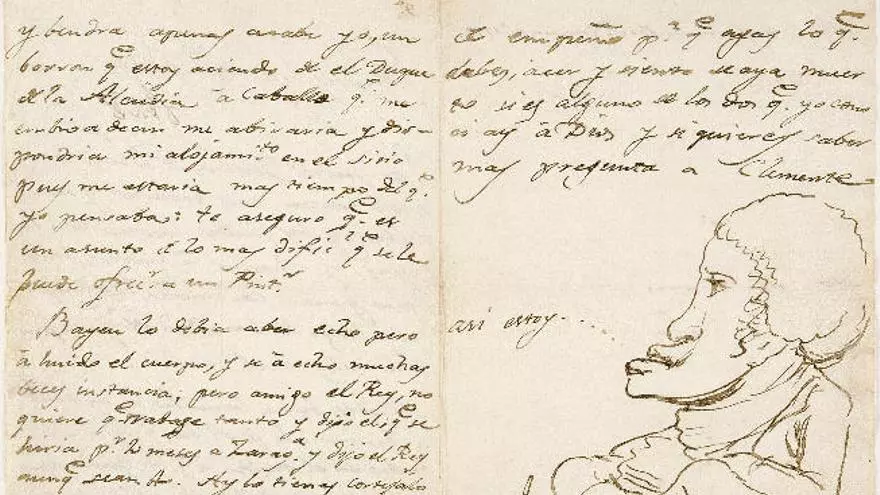 y bendra apenas acabe yo, un
borron q.e estoy aciendo de el Duque
de la Alcudia a Caballo q.e me
embio a decir me abisaria y dis-
pondria mi alojami.to en el sitio
pues me estaria mas tiempo del q.e
yo pensaba: te aseguro q.e es
un asunto de lo mas dificil q.e se le
puede ofrec.r a un Pint.r
Bayeu lo debia aber echo pero
à huido el cuerpo, y se à echo muchas
beces instancia; pero amigo el Rey, no
quiere q.e trabaje tanto y dijo el q.e se
hiria p.r dos meses a Zarag.a y dijo el Rey
aunq.e sean 4. Ay lo tienes
el empeño p.a q.e agas lo q.e
debes, acer y siento se aya muer
to si es alguno de los dos q.e yo cono
ci ay à Dios y si quieres saber
mas pregunta a Clemente
asi estoy.....